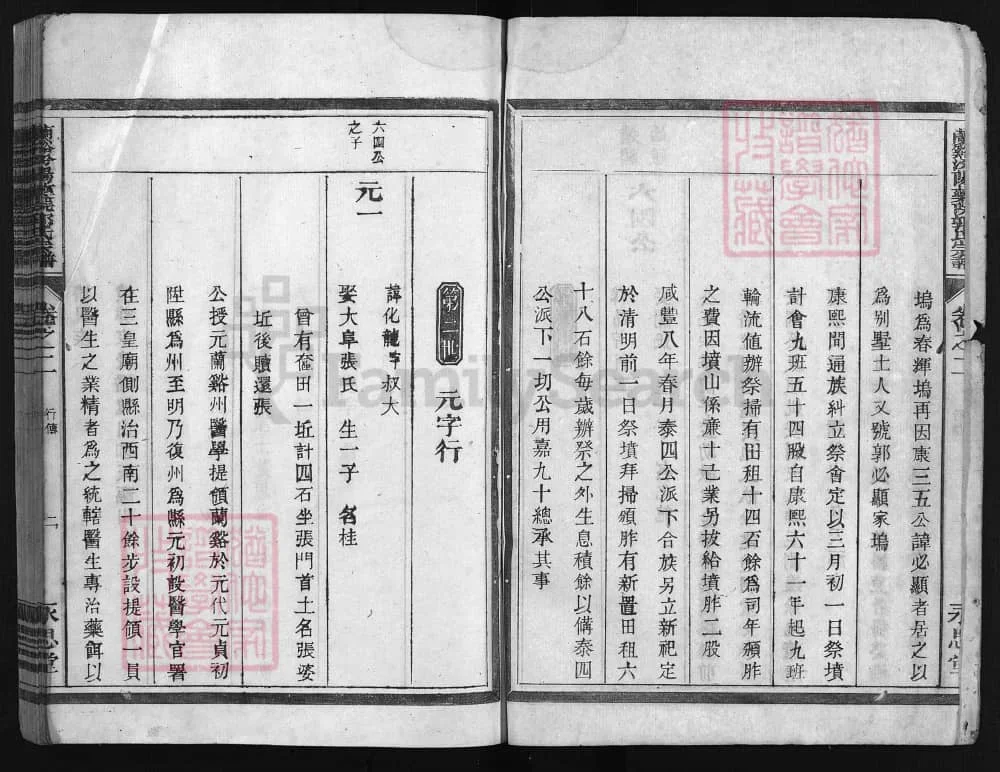 塢爲春輝塢再因康三五公諱必顯者居之以
爲别墅土人又號郭必顯家塢
康熙間通族糾立祭會定以三月初一日祭墳
計會九班五十四股自康熙六十一年起九班
輪流值辦祭掃有田租十四石餘爲司年頒胙
之費因墳山係亷十己業另拔給墳胙二股
咸豐八年春月泰四公派下合族另立新祀定
於清明前一日祭墳拜掃頒胙有新置田租六
十八石餘每歲辦祭之外生息積餘以備泰四
公派下一切公用嘉九十總承其事
卷之二
永思堂
第三世
元字行
六四公
之子
元一
諱化龍字叔大
娶大阜張氏 生一子 名桂
曾有奩田一坵計四石坐張門首土名張婆
坵後贖還張
公授元蘭谿州醫學提領蘭谿於元代元貞初
陞縣爲州至明乃復州爲縣元初設醫學官署
在三皇廟側縣治西南二十餘步設提領一員
以醫生之業精者爲之統轄醫生專治藥餌以
卷之二
行傳
二
永思堂
FamilySearch